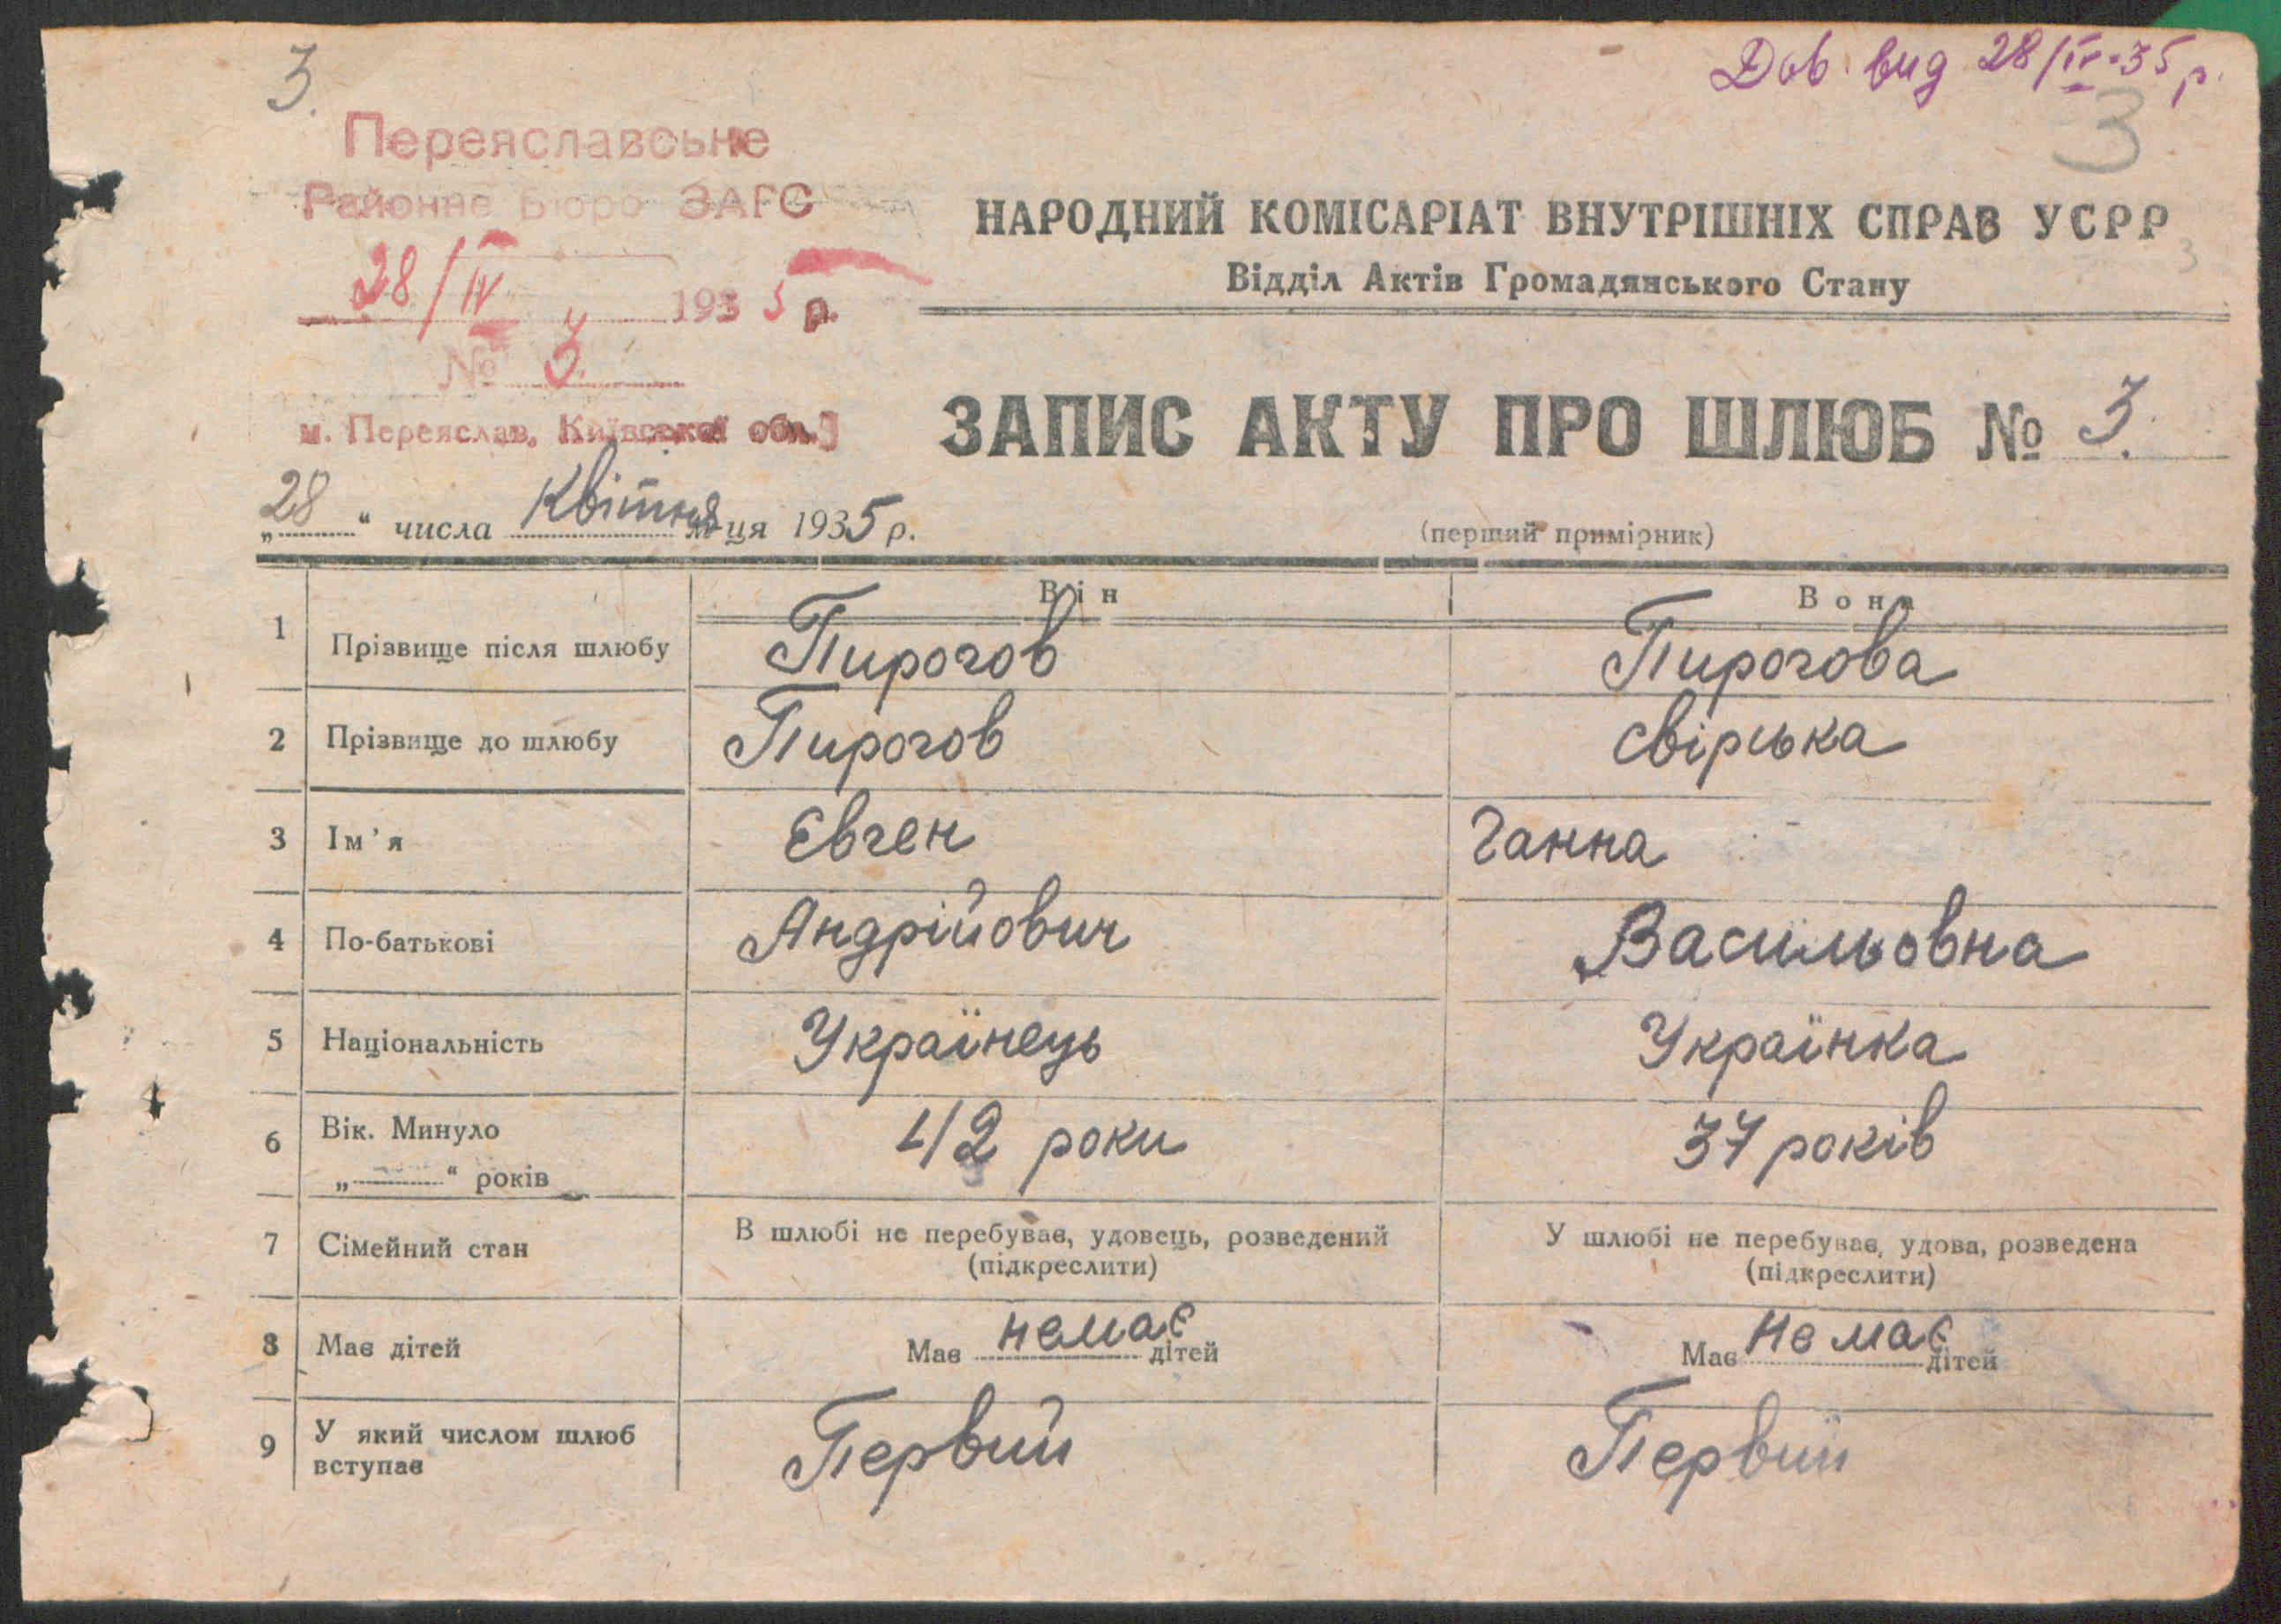 3.
Дов. вид 28/IV-35 р.
3
Переяславське
Районне Бюро ЗАГС
28/IV 1935 р.
№ 3
м. Переяслав, Київської обл.
НАРОДНИЙ КОМІСАРІАТ ВНУТРІШНІХ СПРАВ УСРР
3
Відділ Актів Громадянського Стану
ЗАПИС АКТУ ПРО ШЛЮБ № 3.
„28“ числа Квітня м-ця 1935 р.
(перший примірник)
Він Вона
1 Прізвище після шлюбу Пирогов Пирогова
2 Прізвище до шлюбу Пирогов Свірська
3 Ім'я Євген Ганна
4 По-батькові Андрійович Васильовна
5 Національність Українець Українка
6 Вік. Минуло
„ “ років 42 роки 37 років
7 Сімейний стан В шлюбі не перебував, удовець, розведений У шлюбі не перебував, удова, розведена
(підкреслити) (підкреслити)
8 Має дітей Має немає дітей Має не має дітей
9 У який числом шлюб
вступає Первий Первий